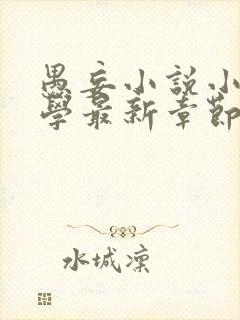 愚妄小說小
學最新章節
水城凜